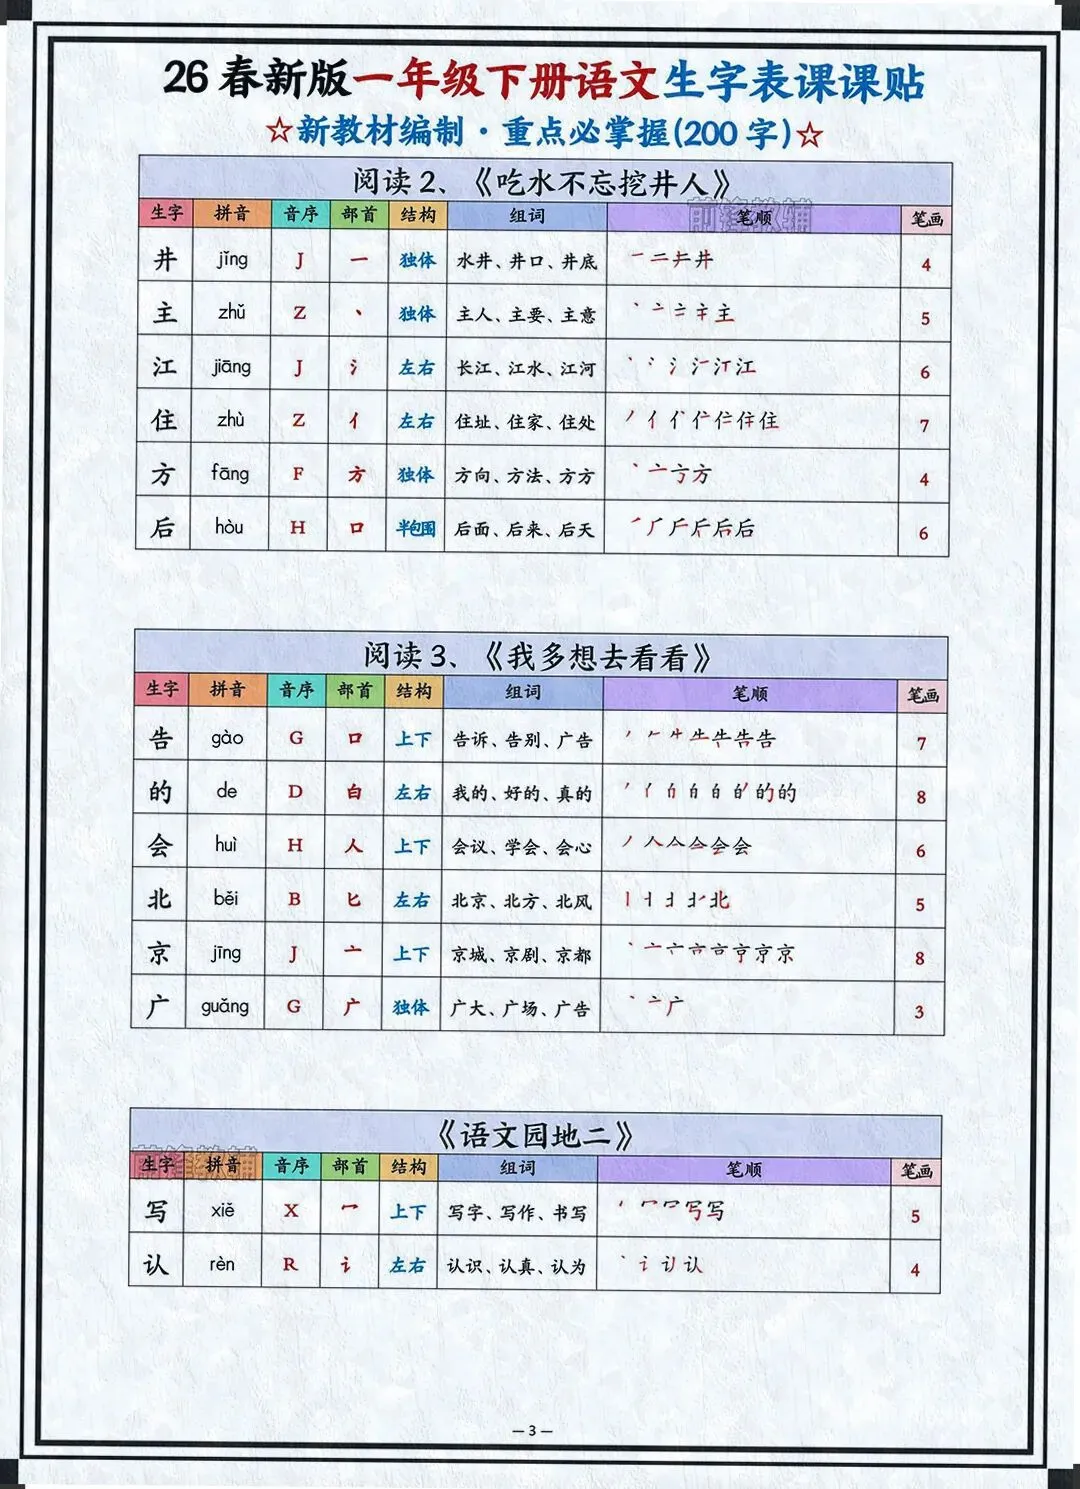 26春新版一年级下册语文生字表课课贴
☆新教材编制·重点必掌握(200字)☆
阅读2、《吃水不忘挖井人》
生字 拼音 音序 部首 结构 组词 笔顺 笔画
井 jǐng J 一 独体 水井、井口、井底 4
主 zhǔ Z 丶 独体 主人、主要、主意 5
江 jiāng J 氵 左右 长江、江水、江河 6
住 zhù Z 亻 左右 住址、住家、住处 7
方 fāng F 方 独体 方向、方法、方方 4
后 hòu H 口 半包围 后面、后来、后天 6
阅读3、《我多想去看看》
生字 拼音 音序 部首 结构 组词 笔顺 笔画
告 gào G 口 上下 告诉、告别、广告 7
的 de D 白 左右 我的、好的、真的 8
会 huì H 人 上下 会议、学会、会心 6
北 běi B 匕 左右 北京、北方、北风 5
京 jīng J 亠 上下 京城、京剧、京都 8
广 guǎng G 广 独体 广大、广场、广告 3
《语文园地二》
生字 拼音 音序 部首 结构 组词 笔顺 笔画
写 xiě X 冖 上下 写字、写作、书写 5
认 rèn R 讠 左右 认识、认真、认为 4
— 3 —